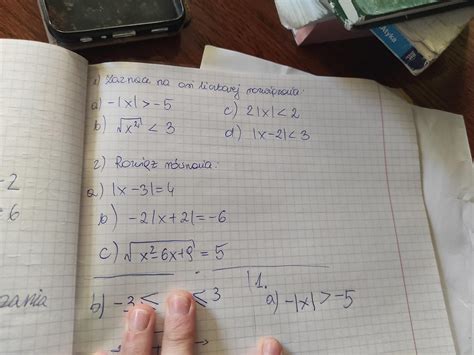 1) Zaznacz na osi liczbowej rozwiązania:
a) -|x| > -5
c) 2|x| < 2
b) √x² < 3
d) |x-2| < 3
2) Rozwiąż równania:
a) |x-3| = 4
b) -2|x+2| = -6
c) √x²-6x+9 = 5
b) -3 ≤ ≤ 3
1.
a) -|x| > -5
-2
= 6
zania